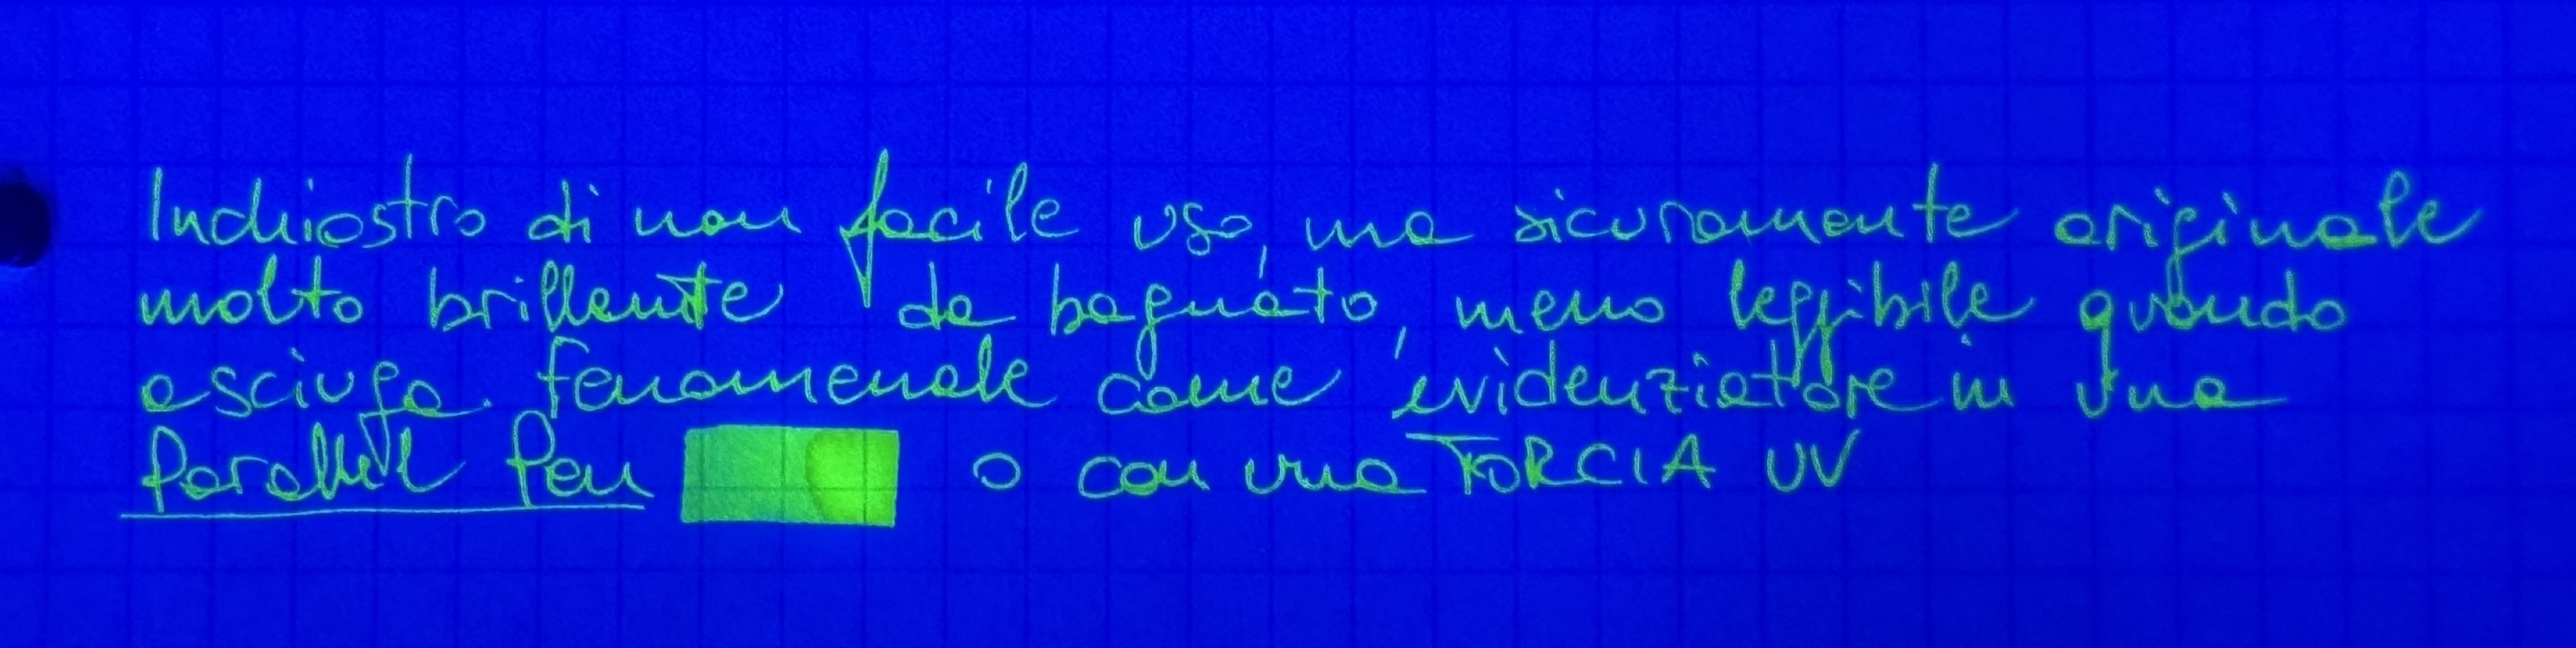 Inchiostro di non facile uso, ma sicuramente originale
molto brillante da bagnato, meno leggibile quando
asciuga. Fenomenale come evidenziatore in una
Parallel Pen o con una TORCIA UV